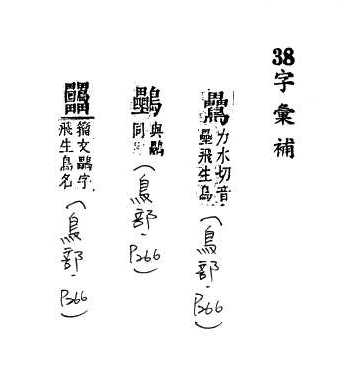 38字彙補
力水切音
壘飛生鳥
(鳥部.P266)
與鸓
同
(鳥部.P266)
籀文鸓字
飛生鳥名
(鳥部.P266)